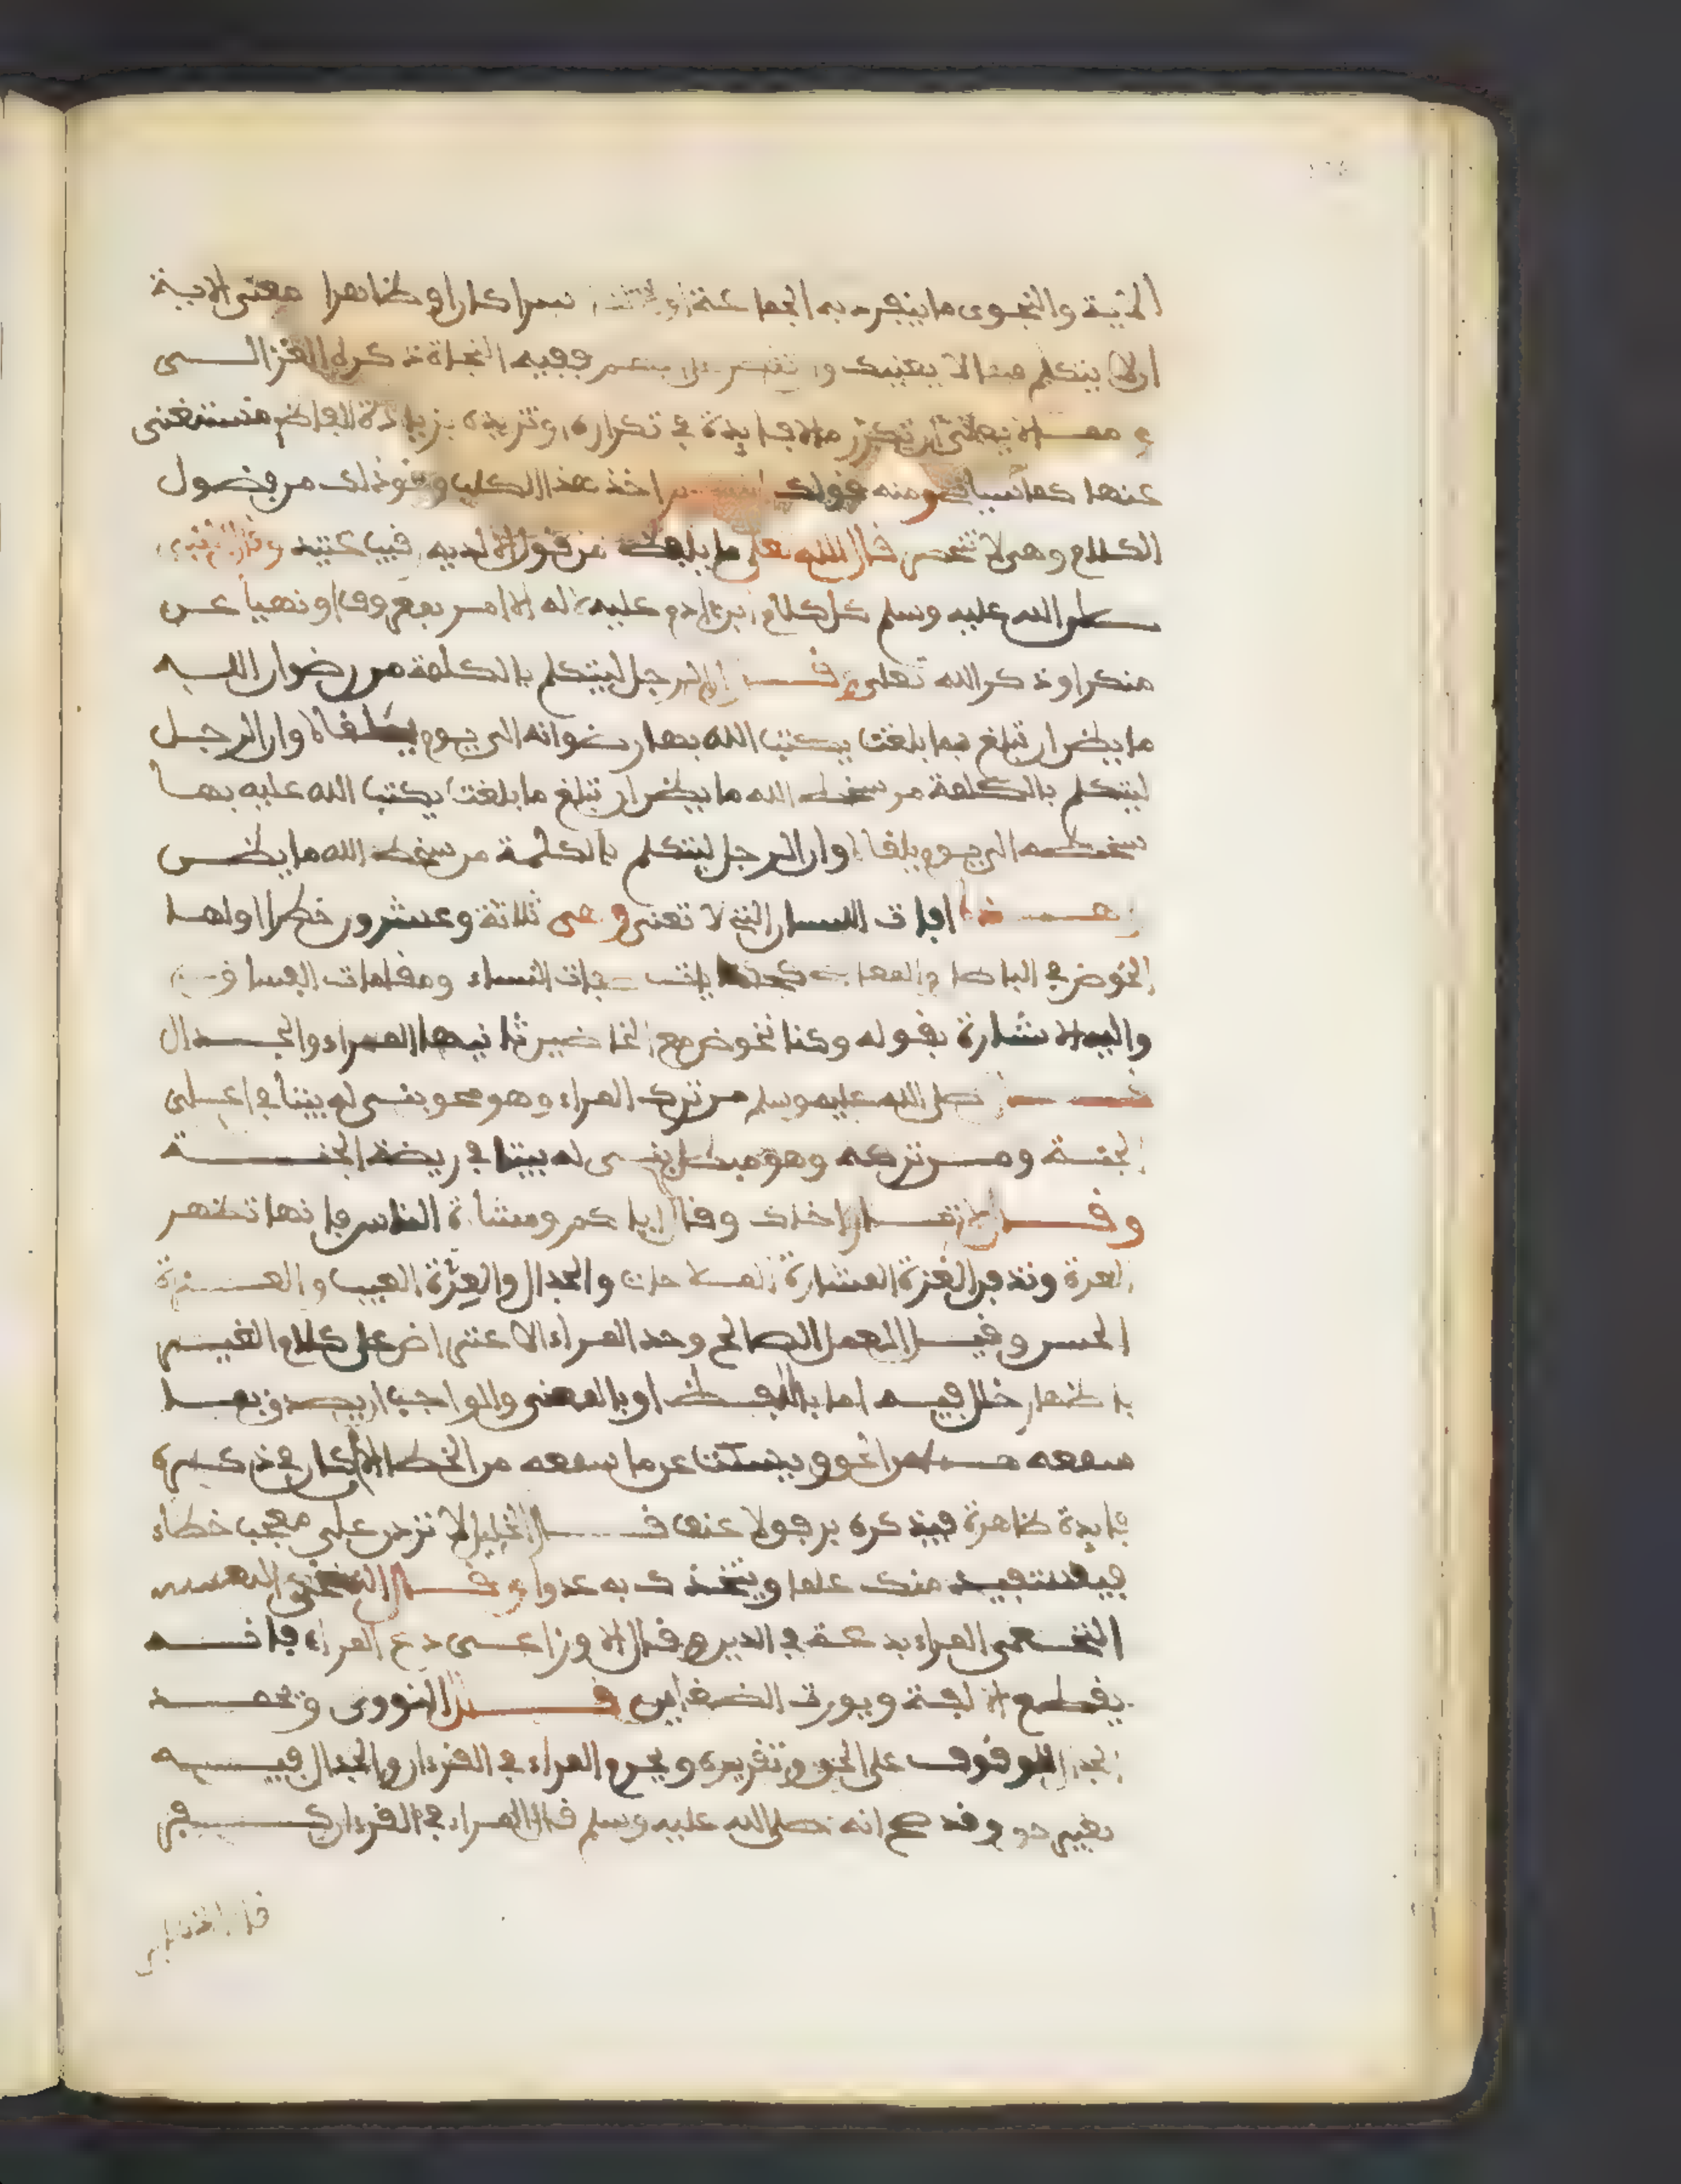 والنجوى ما ينفرد به الجماعة سرا كان او ظاهرا معنى الاية
ان لا يتكلم فيما لا يعنيك ففيه النجاة ذكره الغزالى
تكرر ما لا فايدة في تكراره وتزيده بزيادة الفاظ مستغنى
عنها ومنه قولك خذ هذا الكلب ونحو ذلك من فضول
الكلام وهى لا تنحصر قال الله تعلى ما يلفظ من قول الا لديه رقيب عتيد
صلى الله عليه وسلم كل كلام ابن ادم عليه لا له الا امر بمعروف او نهيا عن
منكر او ذكر الله تعلى ان الرجل ليتكلم بالكلمة من رضوان الله
ما يظن ان تبلغ ما بلغت يكتب الله بها رضوانه الى يوم يلقاه وان الرجل
ليتكلم بالكلمة من سخط الله ما يظن ان تبلغ ما بلغت يكتب الله عليه بها
سخطه الى يوم يلقاه وان الرجل ليتكلم بالكلمة من سخط الله ما يظن
افات اللسان التي لا تعنى وهى ثلاثة وعشرون خطرا اولها
الخوض في الباطل النساء ومقامات الفساق
واليه الاشارة بقوله وكنا نخوض مع الخايضين ثانيها المراء والجدال
صلى الله عليه وسلم من ترك المراء وهو محق بنى له بيتا في اعلى
الجنة ومن تركه وهو مبطل بنى له بيتا في ربضة الجنة
وقال لا تمار اخاك وقال اياكم ومشارة الناس فانها تظهر
العرة وتدفن الغرة المشارة والجدال والعرة العيب والغرة
الحسن وقيل العمل الصالح وحد المراء الاعتراض على كلام الغير
باظهار خلل فيه اما باللفظ او بالمعنى والواجب ان يصدق بما
سمعه من الحق ويسكت عن ما سمعه من الخطا الا ان كان في ذكره
فايدة ظاهرة فيذكره برفق لا عنف قال الخليل لا تردن على معجب خطاء
فيستفيد منك علما ويتخذك به عدوا قال
النخعى المراء بدعة في الدين وقال الاوزاعى دع المراء فانه
يقطع الالفة ويورث الضغاين قال النووى
الوقوف على الحق وتقريره ويحرم المراء في القرءان والجدال فيه
بغير حق وقد صح انه صلى الله عليه وسلم قال المراء في القرءان كفر